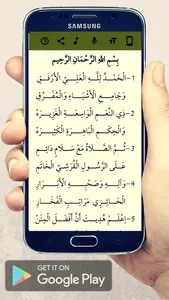 SAMSUNG
بِسْمِ اللهِ الرَّحْمَانِ الرَّحِيمِ
1 - الْحَمْدُ لِلَّهِ الْعَلِيِّ الْأَرْفَقِ
وَجَامِعِ الْأَشْيَاءِ وَالْمُفَرِّقِ
2 - ذِي النِّعَمِ الْوَاسِعَةِ الْغَزِيرَةْ
وَالْحِكَمِ الْبَاهِرَةِ الْكَثِيرَةْ
3 - ثُمَّ الصَّلَاةُ مَعَ سَلَامٍ دَائِمِ
عَلَى الرَّسُولِ الْقُرَشِيِّ الْخَاتِمِ
4 - وَآلِهِ وَصَحْبِهِ الْأَبْرَارِ
الْحَائِزِي مَرَاتِبِ الْفَخَارِ
5 - اِعْلَمْ هُدِيتَ أَنَّ أَفْضَلَ الْمِنَنْ
GET IT ON
Google Play